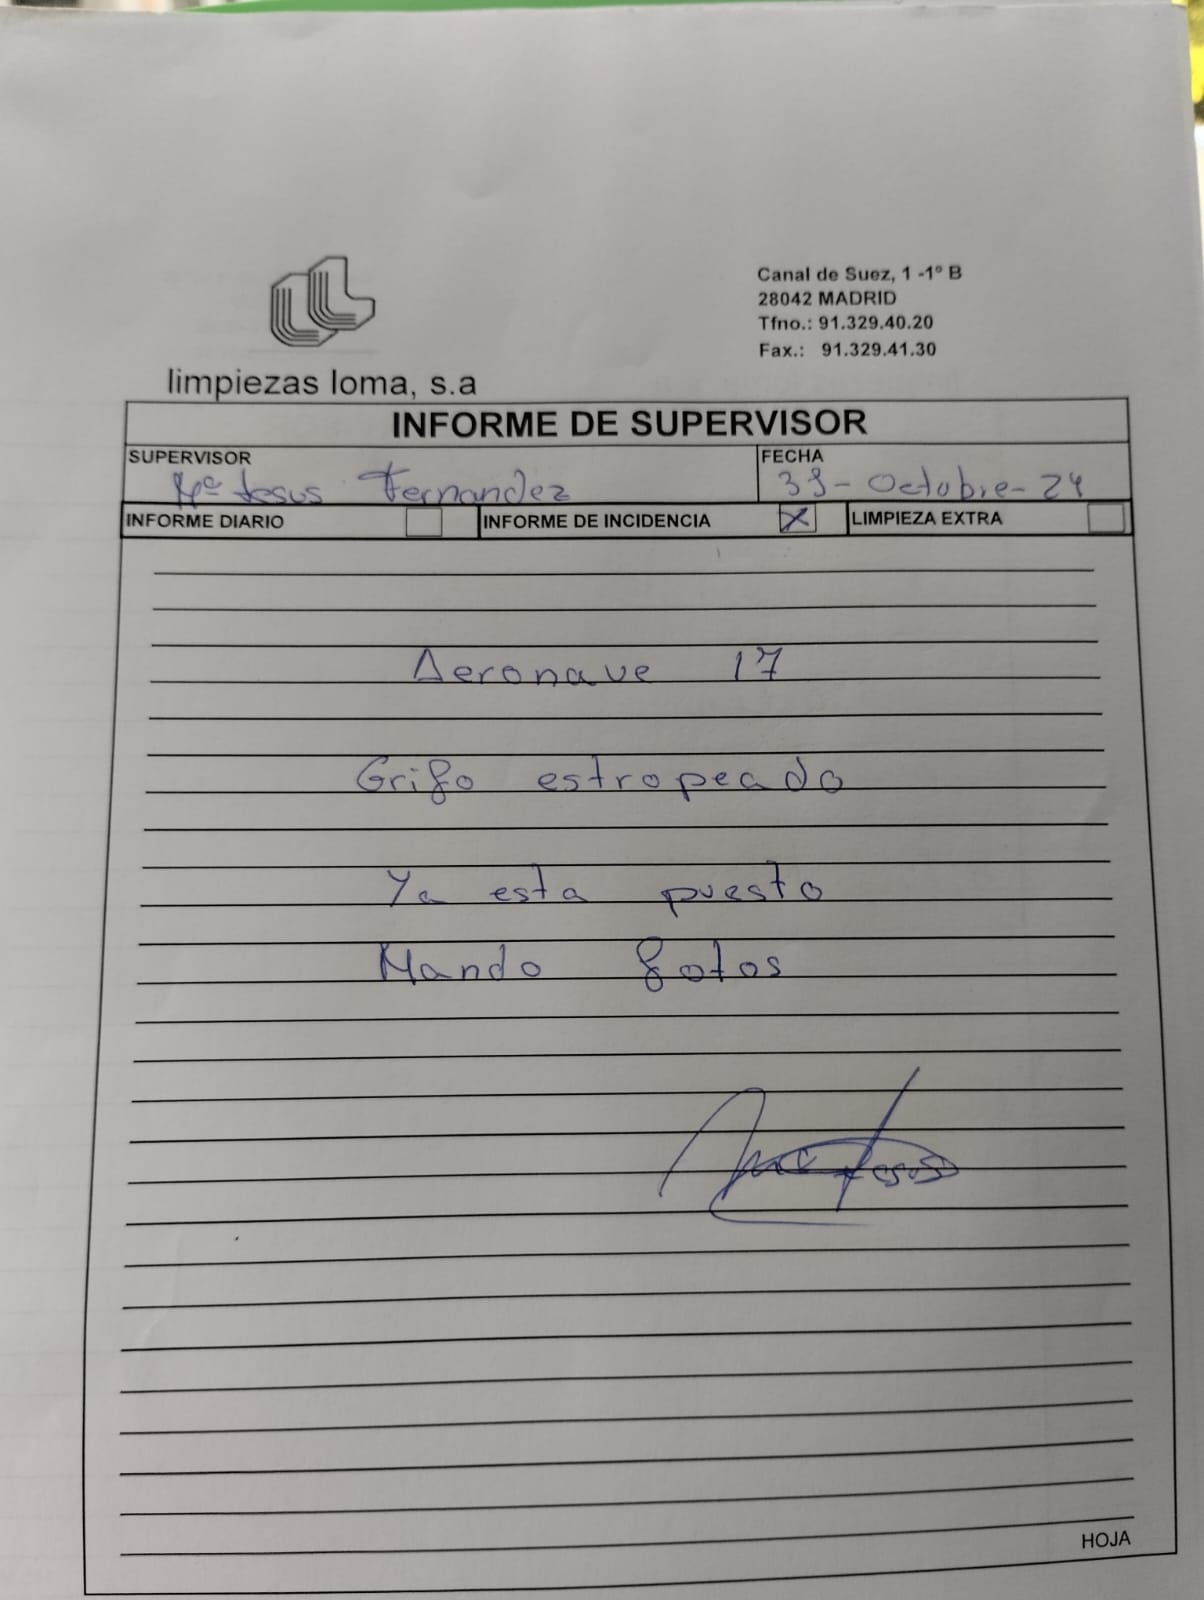 Canal de Suez, 1 -1º B
28042 MADRID
Tfno.: 91.329.40.20
Fax.: 91.329.41.30
limpiezas loma, s.a
INFORME DE SUPERVISOR
SUPERVISOR
Mª Jesus Fernandez
FECHA
31-Octubre-24
INFORME DIARIO
INFORME DE INCIDENCIA X
LIMPIEZA EXTRA
Aeronave 17
Grifo estropeado
Ya esta puesto
Mando fotos
HOJA